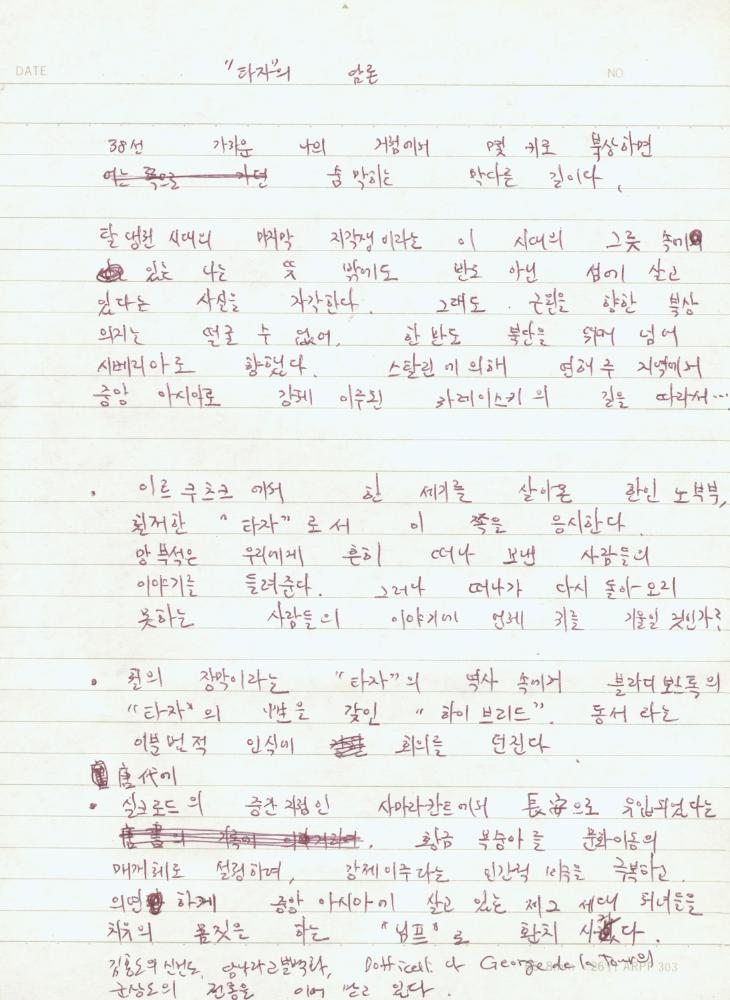 DATE
"타자"의 암론
NO
38선 가까운 나의 거점에서 몇 키로 북상하면
여는 쪽으로 가던 숨 막히는 막다른 길이다.
탈 냉전 시대의 마지막 지각생이라는 이 시대의 그릇 속에
있는 나는 뜻 밖에도 반도 아닌 섬에 살고
있다는 사실을 자각한다. 그래도 근원을 향한 북상
의지는 떨굴 수 없어, 한반도 북단을 뛰어 넘어
시베리아로 향했다. 스탈린에 의해 연해주 지역에서
중앙 아시아로 강제 이주된 카레이스키의 길을 따라서…
• 이르쿠츠크에서 한 세기를 살아온 한인 노부부,
철저한 "타자"로서 이 쪽을 응시한다.
망부석은 우리에게 흔히 떠나 보낸 사람들의
이야기를 들려준다. 그러나 떠나가 다시 돌아-오지
못하는 사람들의 이야기에 언제 귀를 기울일 것인가?
• 철의 장막이라는 "타자"의 역사 속에서 블라디보스톡의
"타자"의 性을 갖인 "하이브리드". 동서라는
이분법적 인식에 회의를 던진다.
唐代에
• 실크로드의 중간지점인 사마라칸트에서 長安으로 유입되었다는
唐書의 기록에 황금 복숭아를 문화이동의
매개체로 설정하며, 강제이주라는 비극을 극복하고
의연하게 중앙 아시아에 살고 있는 제3세대 처녀들을
치유의 몸짓을 하는 "님프"로 환치 시켰다.
김홍도의 신선도, 당나라 고분벽화, Botticelli 나 George de la Tour의
군상도의 전통을 이어 받고 있다.